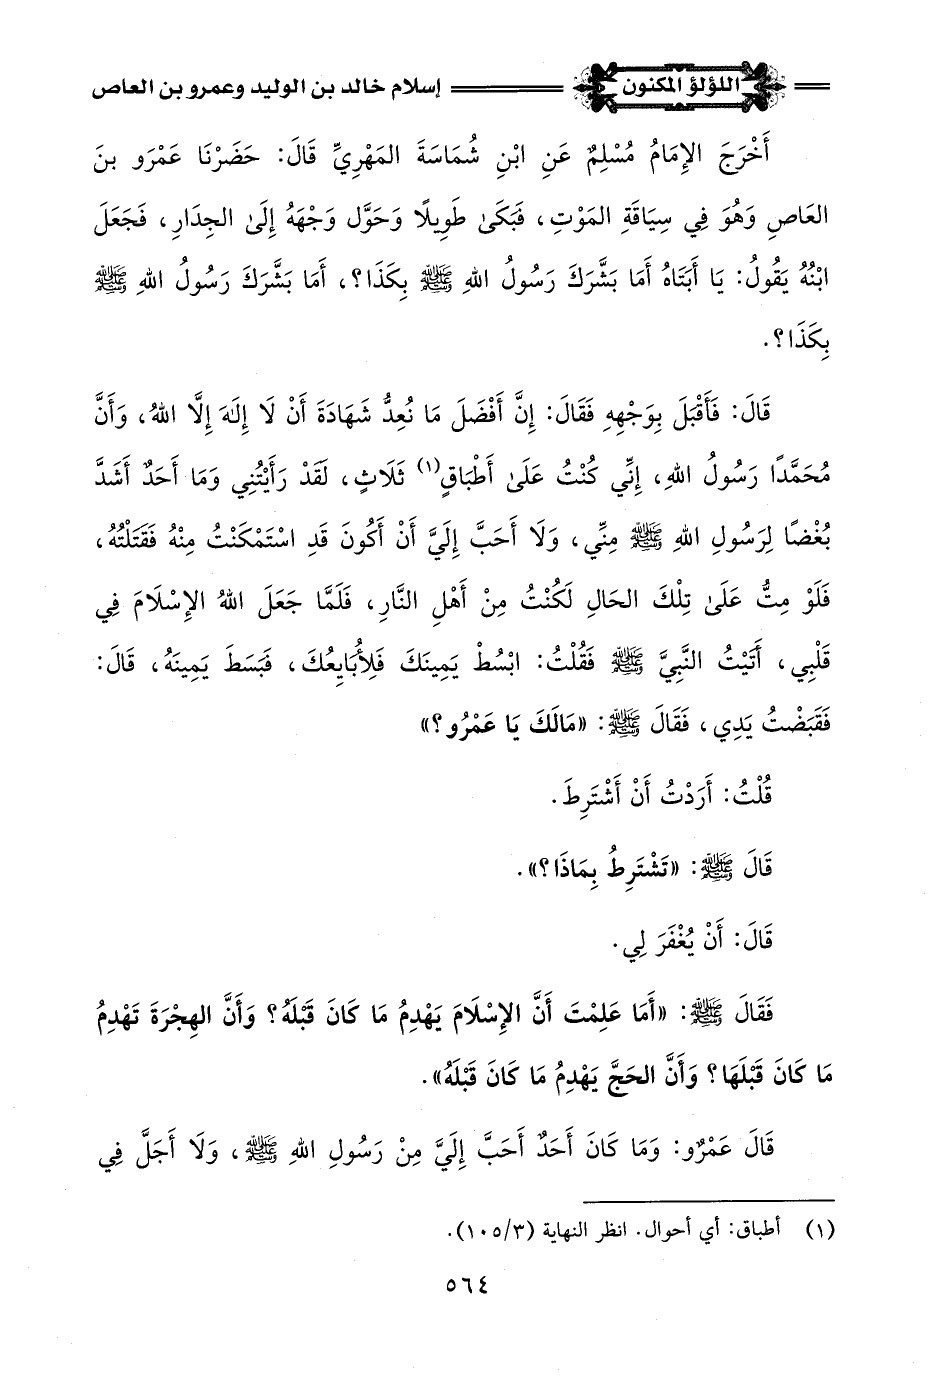 اللؤلؤ المكنون إسلام خالد بن الوليد وعمرو بن العاص
أَخْرَجَ الإِمَامُ مُسْلِمٌ عَنِ ابْنِ شُمَاسَةَ المَهْرِيِّ قَالَ: حَضَرْنَا عَمْرَو بنَ
العَاصِ وَهُوَ فِي سِيَاقَةِ المَوْتِ، فَبَكَىٰ طَوِيلًا وَحَوَّلَ وَجْهَهُ إِلَىٰ الجِدَارِ، فَجَعَلَ
ابْنُهُ يَقُولُ: يَا أَبَتَاهُ أَمَا بَشَّرَكَ رَسُولُ اللهِ ﷺ بِكَذَا؟، أَمَا بَشَّرَكَ رَسُولُ اللهِ ﷺ
بِكَذَا؟.
قَالَ: فَأَقْبَلَ بِوَجْهِهِ فَقَالَ: إِنَّ أَفْضَلَ مَا نُعِدُّ شَهَادَةَ أَنْ لَا إِلَهَ إِلَّا اللهُ، وَأَنَّ
مُحَمَّدًا رَسُولُ اللهِ، إِنِّي كُنْتُ عَلَىٰ أَطْبَاقٍ(١) ثَلَاثٍ، لَقَدْ رَأَيْتُنِي وَمَا أَحَدٌ أَشَدَّ
بُغْضًا لِرَسُولِ اللهِ ﷺ مِنِّي، وَلَا أَحَبَّ إِلَيَّ أَنْ أَكُونَ قَدِ اسْتَمْكَنْتُ مِنْهُ فَقَتَلْتُهُ،
فَلَوْ مِتُّ عَلَىٰ تِلْكَ الحَالِ لَكُنْتُ مِنْ أَهْلِ النَّارِ، فَلَمَّا جَعَلَ اللهُ الإِسْلَامَ فِي
قَلْبِي، أَتَيْتُ النَّبِيَّ ﷺ فَقُلْتُ: ابْسُطْ يَمِينَكَ فَلِأُبَايِعُكَ، فَبَسَطَ يَمِينَهُ، قَالَ:
فَقَبَضْتُ يَدِي، فَقَالَ ﷺ: «مَالَكَ يَا عَمْرُو؟»
قُلْتُ: أَرَدْتُ أَنْ أَشْتَرِطَ.
قَالَ ﷺ: «تَشْتَرِطُ بِمَاذَا؟».
قَالَ: أَنْ يُغْفَرَ لِي.
فَقَالَ ﷺ: «أَمَا عَلِمْتَ أَنَّ الإِسْلَامَ يَهْدِمُ مَا كَانَ قَبْلَهُ؟ وَأَنَّ الهِجْرَةَ تَهْدِمُ
مَا كَانَ قَبْلَهَا؟ وَأَنَّ الحَجَّ يَهْدِمُ مَا كَانَ قَبْلَهُ».
قَالَ عَمْرٌو: وَمَا كَانَ أَحَدٌ أَحَبَّ إِلَيَّ مِنْ رَسُولِ اللهِ ﷺ، وَلَا أَجَلَّ فِي
(١) أطباق: أي أحوال. انظر النهاية (١٠٥/٣).
٥٦٤